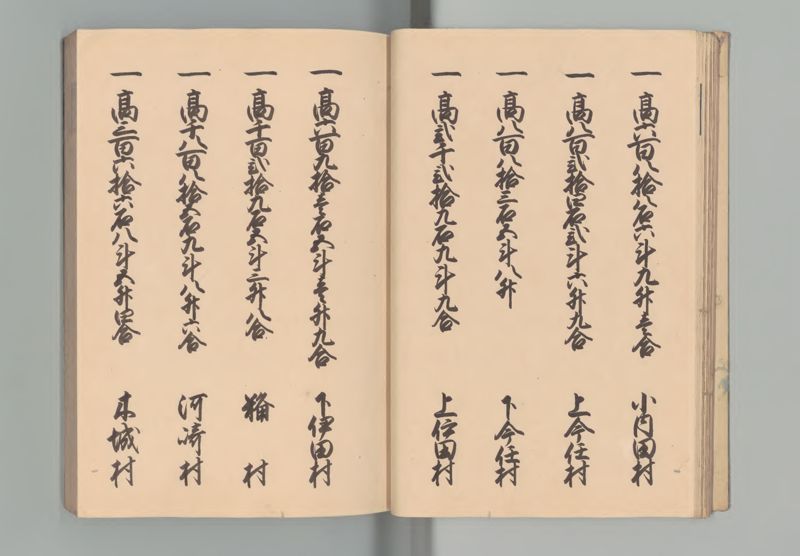 一 高六百八拾八石六斗九升壱合 小内田村
一 高八百弐拾四石弐斗六升九合 上今任村
一 高八百八拾三石五斗八升 下今任村
一 高弐千弐拾九石九斗九合 上伊田村
一 高六百九拾壱石五斗壱升九合 下伊田村
一 高千百弐拾九石五斗三升八合 猪 村
一 高千八百八拾五石九斗八升六合 河崎村
一 高三百六拾六石八斗五升四合 木城村